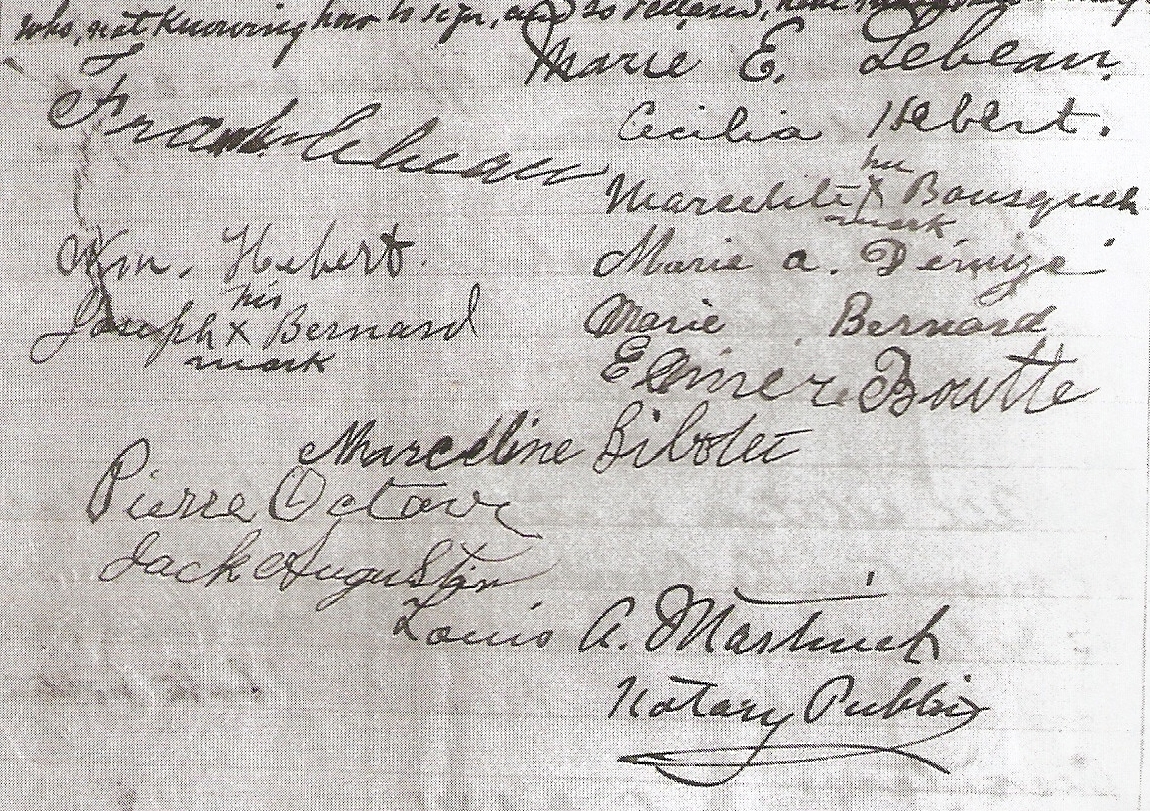 who, not knowing how to sign, and so declared, have
Marie E. Lebeau.
Frank Lebeau
Cecilia Hebert.
her
Marcelite X Bousquet
mark
Wm. Hebert.
Marie a.
his
Joseph X Bernard
mark
Marie Bernard
Elmer Boutte
Marceline
Pierre Octave
Jack Augustin
Louis A. Martinet
Notary Public